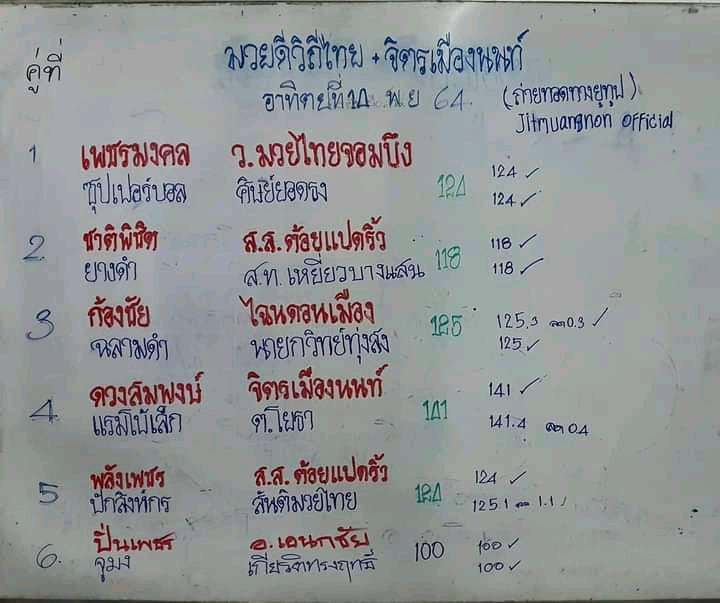 คู่ที่
มวยดีวิถีไทย + จิตรเมืองนนท์
อาทิตย์ที่ พ ย 64
(ถ่ายทอดทางยูทูป)
Jitmuangnon official
1 เพชรมงคล ว.มวยไทยจอมบึง 124 ✓
ซุปเปอร์บอล ศิษย์ยอดธง 124 124 ✓
2 ชาติพิชิต ส.ส.ต้อยแปดริ้ว 118 ✓
ยางดำ ส.ท.เหยี่ยวบางแสน 118 118 ✓
3 ก้องชัย ไฉนดอนเมือง 125 125.3 ลด 0.3 ✓
ฉลามดำ นายกวิทย์ทุ่งสง 125 ✓
4 ดวงสมพงษ์ จิตรเมืองนนท์ 141 141 ✓
แรมโบ้เล็ก ต.โยธา 141.4 ลด 0.4
5 พลังเพชร ส.ส.ต้อยแปดริ้ว 124 ✓
ปักสิงห์กร สันติมวยไทย 124 125.1 ลด 1.1
6. ปิ่นเพชร อ.เอนกชัย 100 100 ✓
จูมง เกียรติทรงฤทธิ์ 100 ✓